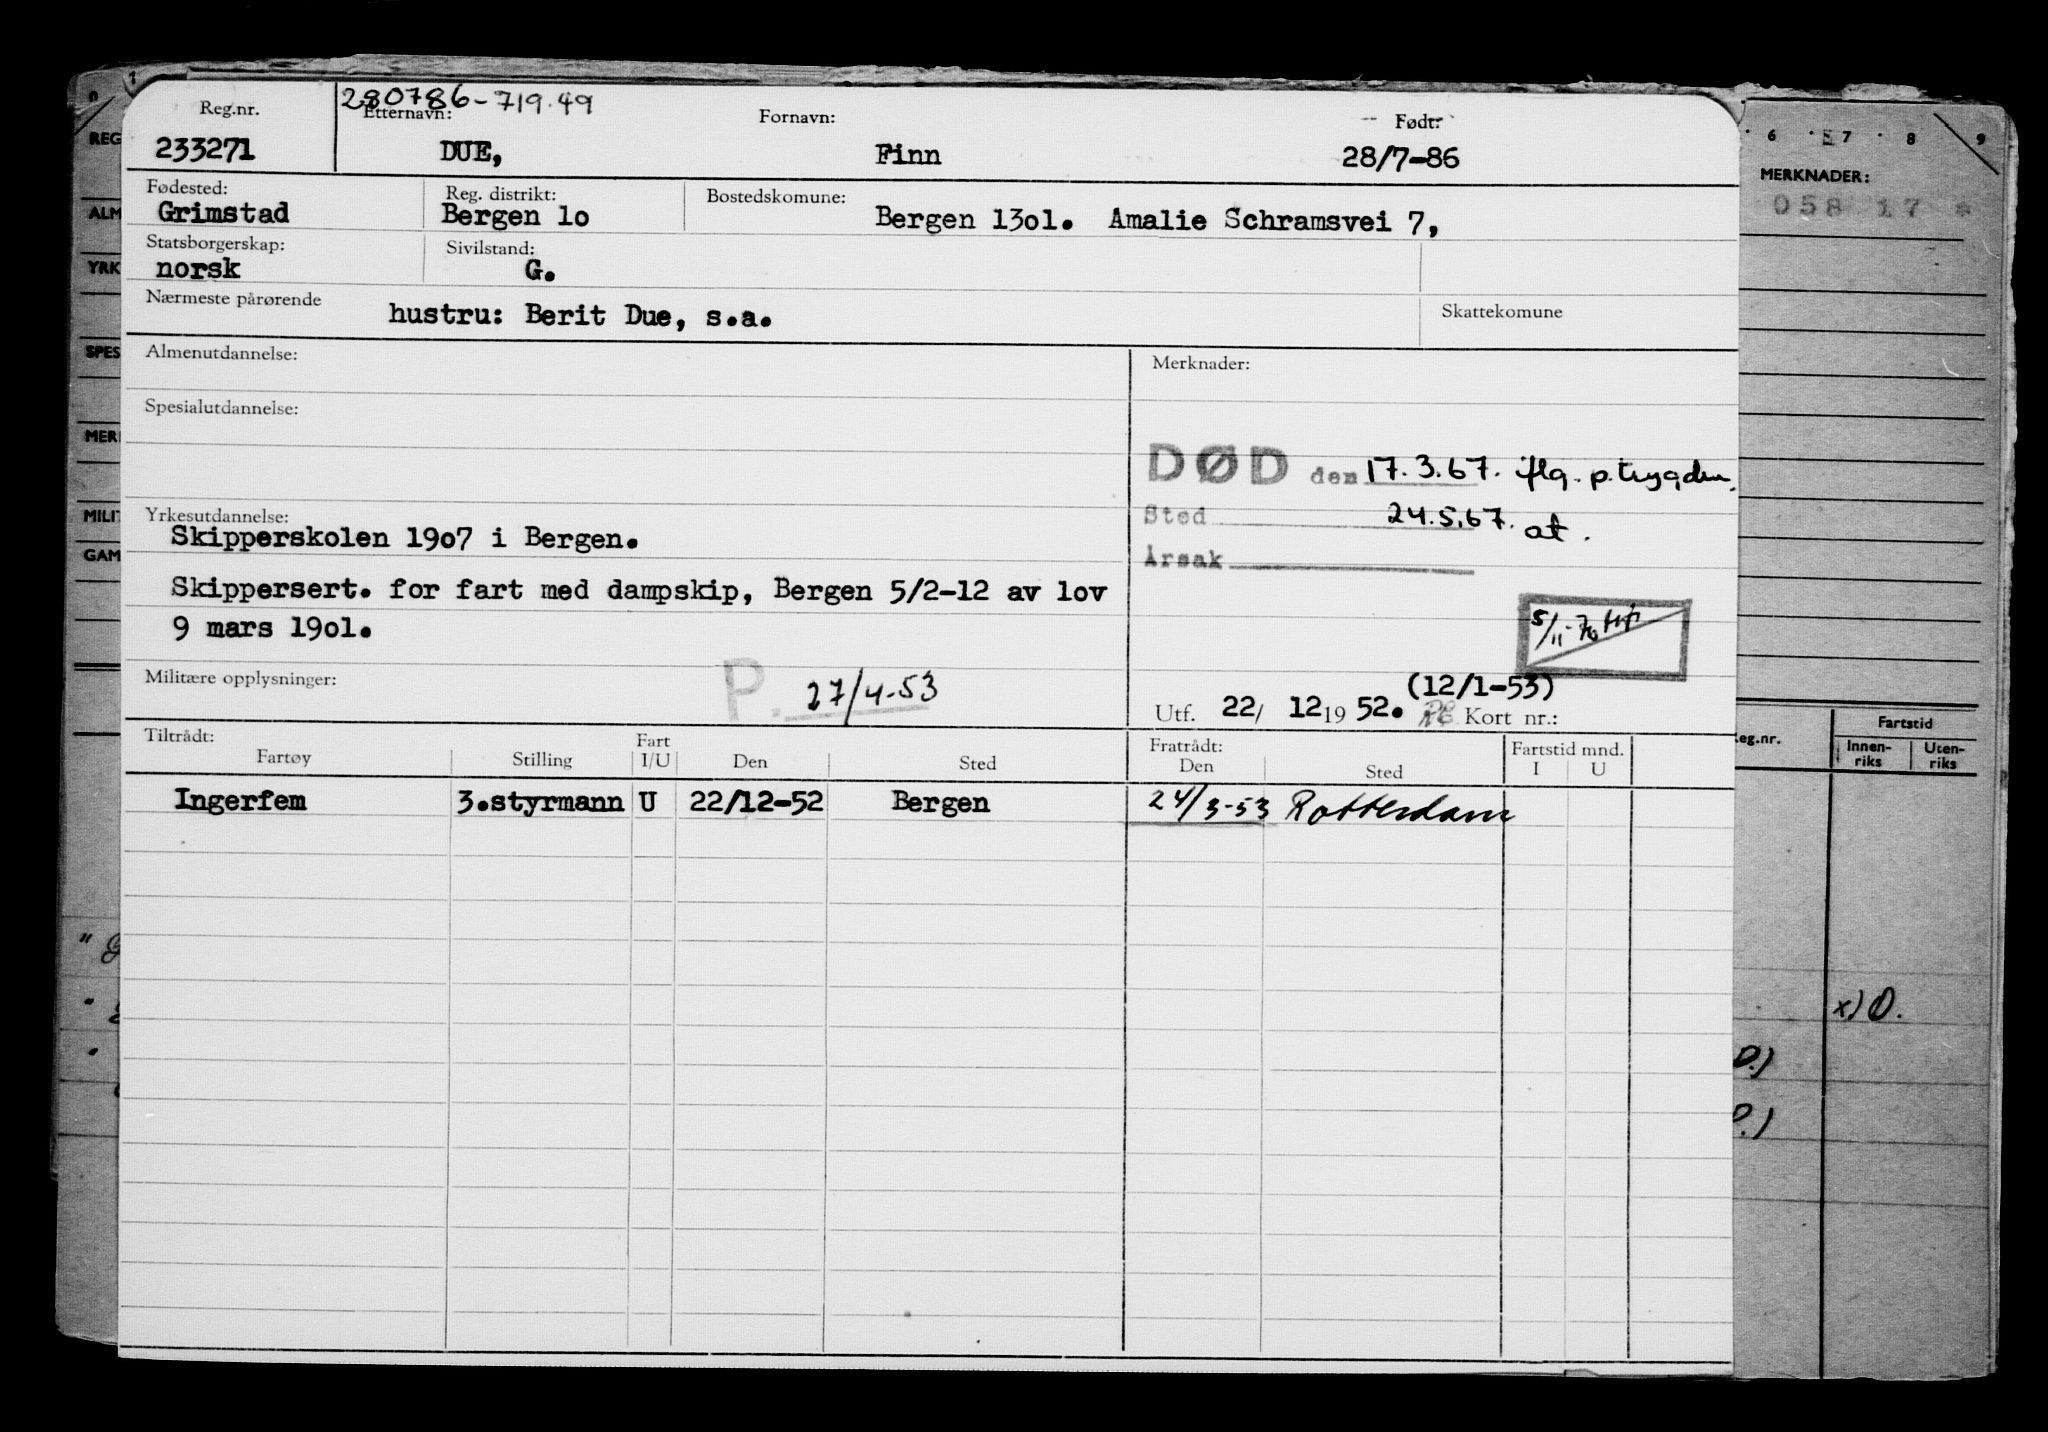 280786-719.49
Reg.nr. Etternavn: Fornavn: Født:
233271 DUE, Finn 28/7-86
Fødested: Reg. distrikt: Bostedskomune:
Grimstad Bergen 1o Bergen 13o1. Amalie Schramsvei 7,
Statsborgerskap: Sivilstand:
norsk G.
Nærmeste pårørende Skattekomune
hustru: Berit Due, s.a.
Almenutdannelse: Merknader:
Spesialutdannelse:
DØD den 17.3.67. iflg. p.trygden.
Sted 24.5.67. at.
Årsak
Yrkesutdannelse:
Skipperskolen 19o7 i Bergen.
Skippersert. for fart med dampskip, Bergen 5/2-12 av lov
9 mars 19o1.
5/11-70
Militære opplysninger: P. 27/4-53
(12/1-53)
Utf. 22/ 12 19 52. Kort nr.:
Tiltrådt: Fratrådt:
Fartøy Stilling Fart I/U Den Sted Den Sted Fartstid mnd. I U
Ingerfem 3.styrmann U 22/12-52 Bergen 24/3-53 Rotterdam
0 1
REG
ALM
YRK
SPES
MER
MILIT
GAM
6 7 8 9
MERKNADER:
058 17 *
eg.nr. Fartstid
Innen-riks Uten-riks
x) 0.
0.)